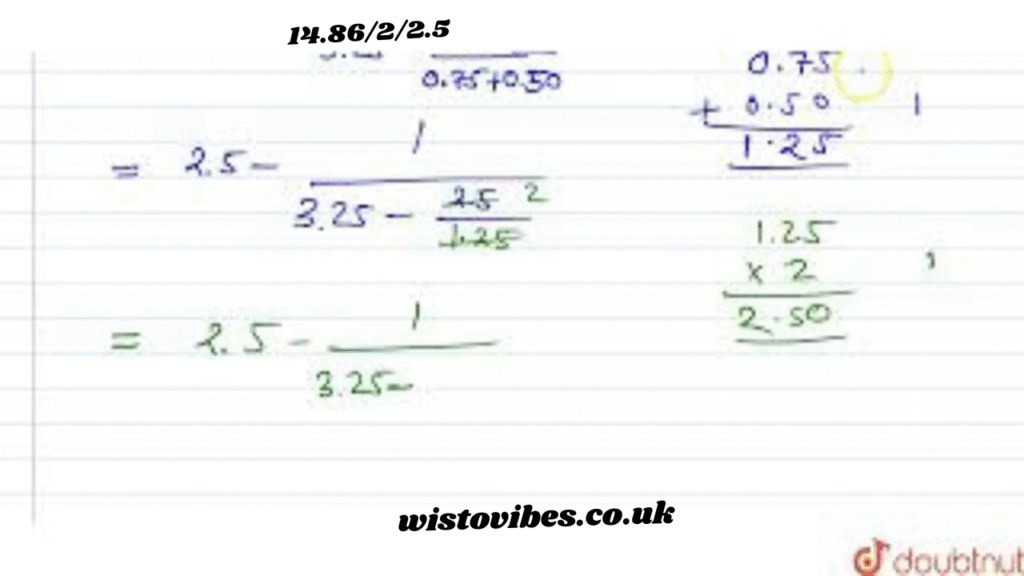 14.86/2/2.5
0.75+0.50
= 2.5 - 1
3.25 - 2.5 2
1.25
= 2.5 - 1
3.25 -
0.75
+ 0.50 1
1.25
1.25
x 2
2.50
wistovibes.co.uk
doubtnut